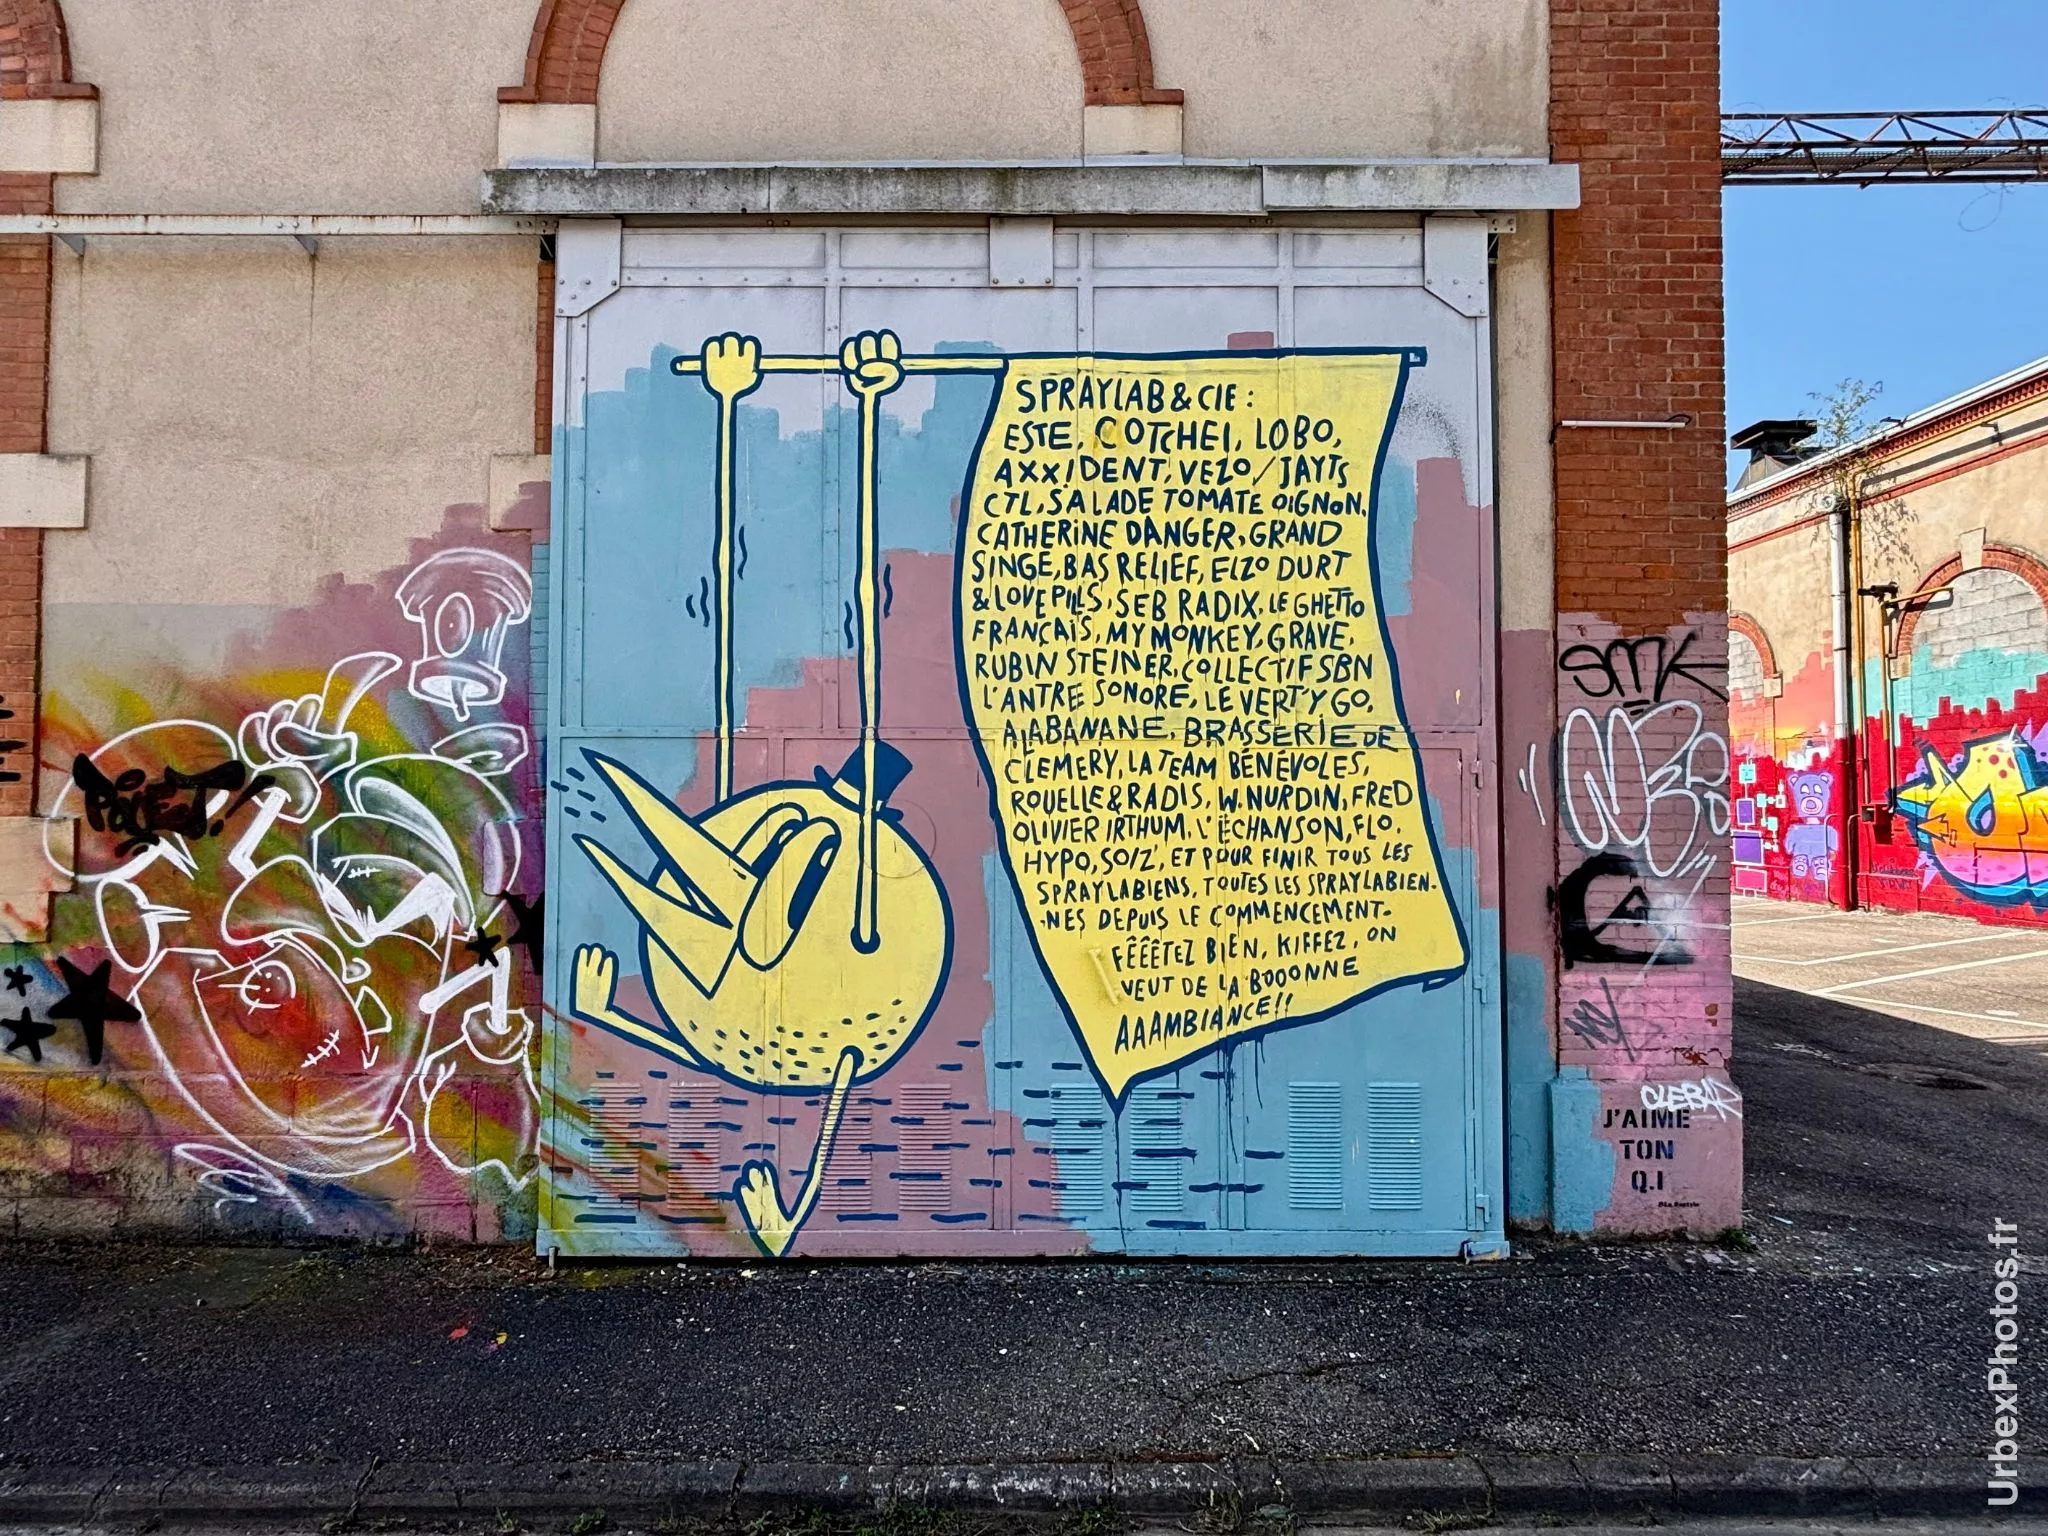 SPRAYLAB & CIE :
ESTE, COTCHEI, LOBO,
AXX!DENT, VEZO / JAYTS
CTL, SALADE TOMATE OIGNON,
CATHERINE DANGER, GRAND
SINGE, BAS RELIEF, ELZO DURT
& LOVEPILLS, SEB RADIX, LE GHETTO
FRANÇAIS, MY MONKEY, GRAVE,
RUBIN STEINER, COLLECTIF SBN
L'ANTRE SONORE, LE VERT'Y GO,
ALABANANE, BRASSERIE DE
CLEMERY, LA TEAM BÉNÉVOLES,
ROUELLE & RADIS, W. NURDIN, FRED
OLIVIER IRTHUM, L'ÉCHANSON, FLO,
HYPO, SOIZ', ET POUR FINIR TOUS LES
SPRAYLABIENS, TOUTES LES SPRAYLABIEN-
-NES DEPUIS LE COMMENCEMENT.
FÊÊÊTEZ BIEN, KIFFEZ, ON
VEUT DE LA BOOONNE
AAAMBIANCE!!
SMK
CLEBAR
J'AIME
TON
Q.I
UrbexPhotos.fr